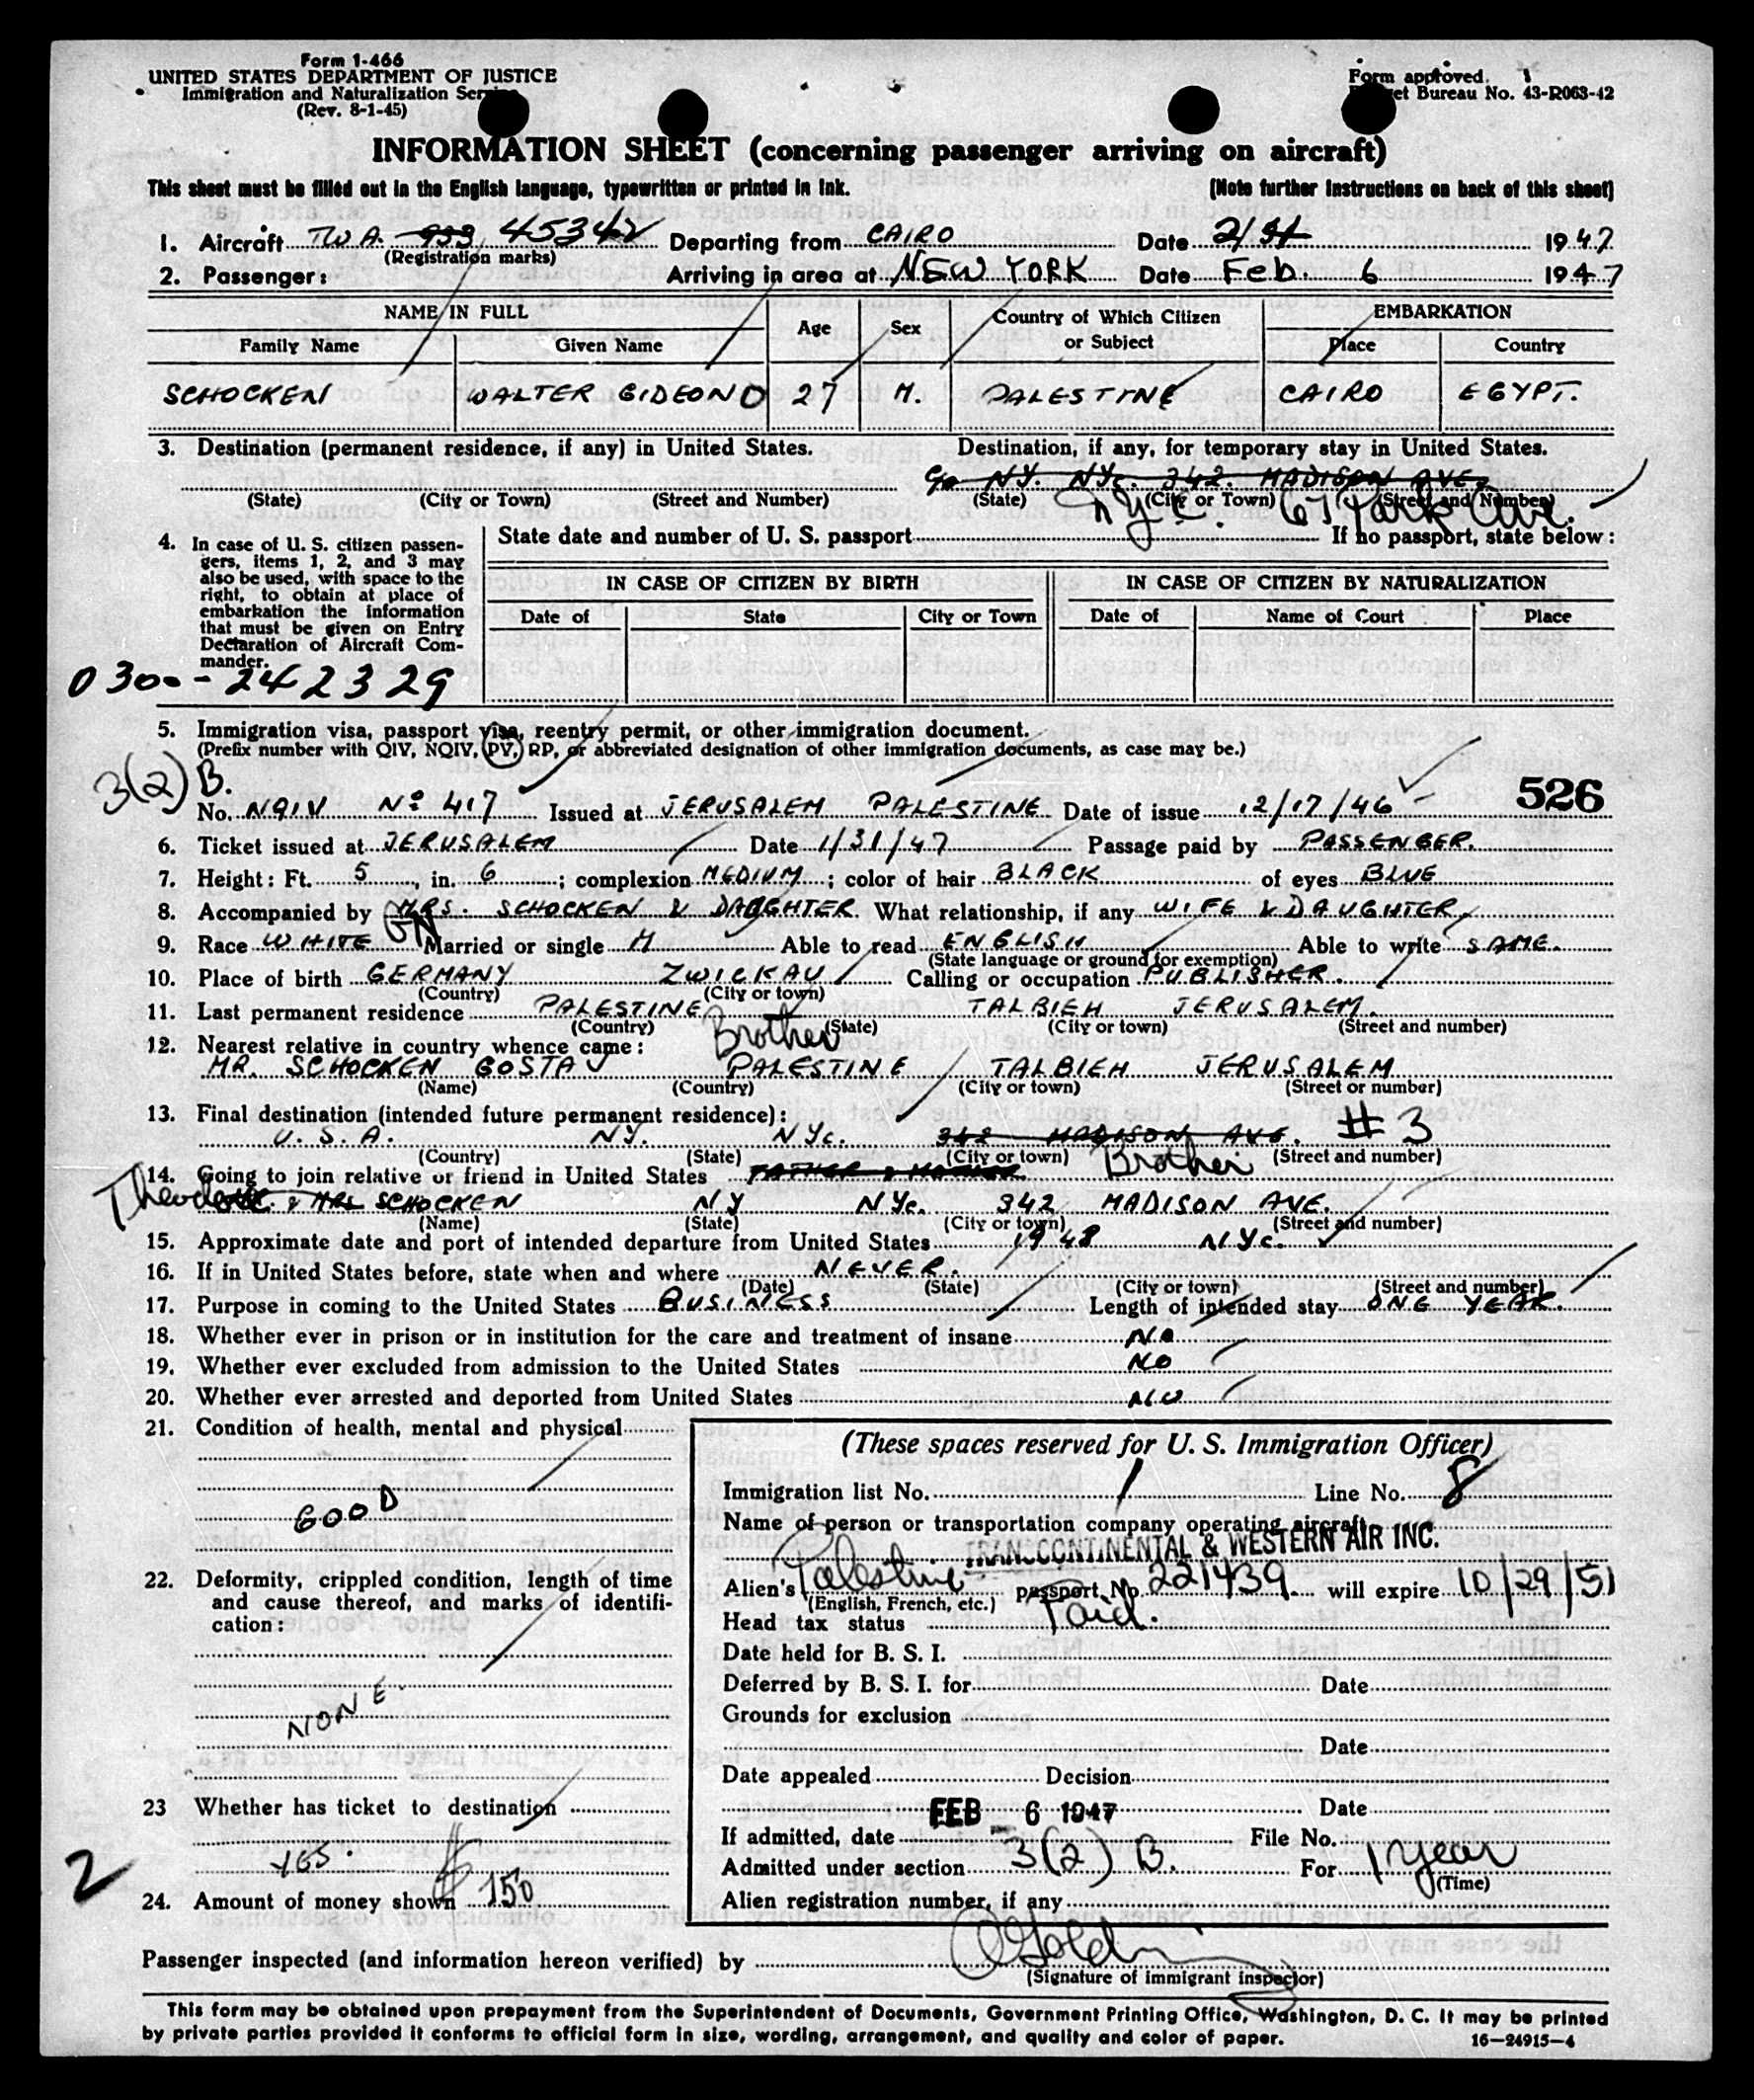 Form 1-466
UNITED STATES DEPARTMENT OF JUSTICE
Immigration and Naturalization
(Rev. 8-1-45)
Form approved.
et Bureau No. 43-R063-42
INFORMATION SHEET (concerning passenger arriving on aircraft)
This sheet must be filled out in the English language, typewritten or printed in ink. (Note further instructions on back of this sheet)
1. Aircraft TWA 933 45342 Departing from CAIRO Date 2/ 1947
(Registration marks)
2. Passenger: Arriving in area at NEW YORK Date Feb. 6 1947
NAME IN FULL Age Sex Country of Which Citizen or Subject EMBARKATION
Family Name Given Name Place Country
SCHOCKEN WALTER GIDEON 27 M. PALESTINE CAIRO EGYPT.
3. Destination (permanent residence, if any) in United States. Destination, if any, for temporary stay in United States.
c/o NY. NYc. 342. MADISON AVE
(State) (City or Town) (Street and Number) (State) (City or Town) (Street and Number)
NYC. 67 Park Ave.
4. In case of U. S. citizen passen-
gers, items 1, 2, and 3 may
also be used, with space to the
right, to obtain at place of
embarkation the information
that must be given on Entry
Declaration of Aircraft Com-
mander.
State date and number of U. S. passport If no passport, state below:
IN CASE OF CITIZEN BY BIRTH IN CASE OF CITIZEN BY NATURALIZATION
Date of State City or Town Date of Name of Court Place
0300-242329
5. Immigration visa, passport visa, reentry permit, or other immigration document.
(Prefix number with QIV, NQIV, PV, RP, or abbreviated designation of other immigration documents, as case may be.)
3(2) B.
526
No. NQIV Nº 417 Issued at JERUSALEM PALESTINE Date of issue 12/17/46
6. Ticket issued at JERUSALEM Date 1/31/47 Passage paid by PASSENGER.
7. Height: Ft. 5, in. 6; complexion MEDIUM; color of hair BLACK of eyes BLUE
8. Accompanied by MRS. SCHOCKEN & DAUGHTER. What relationship, if any WIFE & DAUGHTER
9. Race WHITE Married or single M Able to read ENGLISH Able to write SAME.
(State language or ground for exemption)
10. Place of birth GERMANY ZWICKAU Calling or occupation PUBLISHER.
(Country) (City or town)
11. Last permanent residence PALESTINE TALBIEH JERUSALEM.
(Country) (State) (City or town) (Street and number)
12. Nearest relative in country whence came: Brother
MR. SCHOCKEN GOSTAV PALESTINE TALBIEH JERUSALEM
(Name) (Country) (City or town) (Street or number)
13. Final destination (intended future permanent residence):
U.S.A. NY. NYc. 342 MADISON AVE. #3
(Country) (State) (City or town) (Street and number)
14. Going to join relative or friend in United States FATHER & MOTHER Brother
Theodore & MRS SCHOCKEN NY NYc. 342 MADISON AVE.
(Name) (State) (City or town) (Street and number)
15. Approximate date and port of intended departure from United States 1948 NYc.
16. If in United States before, state when and where NEVER.
(Date) (State) (City or town) (Street and number)
17. Purpose in coming to the United States BUSINESS Length of intended stay ONE YEAR.
18. Whether ever in prison or in institution for the care and treatment of insane NO
19. Whether ever excluded from admission to the United States NO
20. Whether ever arrested and deported from United States NO
21. Condition of health, mental and physical
GOOD
22. Deformity, crippled condition, length of time
and cause thereof, and marks of identifi-
cation:
NONE.
23 Whether has ticket to destination
YES.
2
24. Amount of money shown $ 150
(These spaces reserved for U. S. Immigration Officer)
Immigration list No. 1 Line No. 8
Name of person or transportation company operating aircraft
TRANSCONTINENTAL & WESTERN AIR INC.
Alien's Palestine passport No. 221439. will expire 10/29/51
(English, French, etc.)
Head tax status Paid.
Date held for B. S. I.
Deferred by B. S. I. for Date
Grounds for exclusion
Date
Date appealed Decision
Date
FEB 6 1947
If admitted, date File No.
Admitted under section 3(2) B. For 1 year
(Time)
Alien registration number, if any
Passenger inspected (and information hereon verified) by
(Signature of immigrant inspector)
This form may be obtained upon prepayment from the Superintendent of Documents, Government Printing Office, Washington, D. C. It may be printed
by private parties provided it conforms to official form in size, wording, arrangement, and quality and color of paper. 16—24915-4